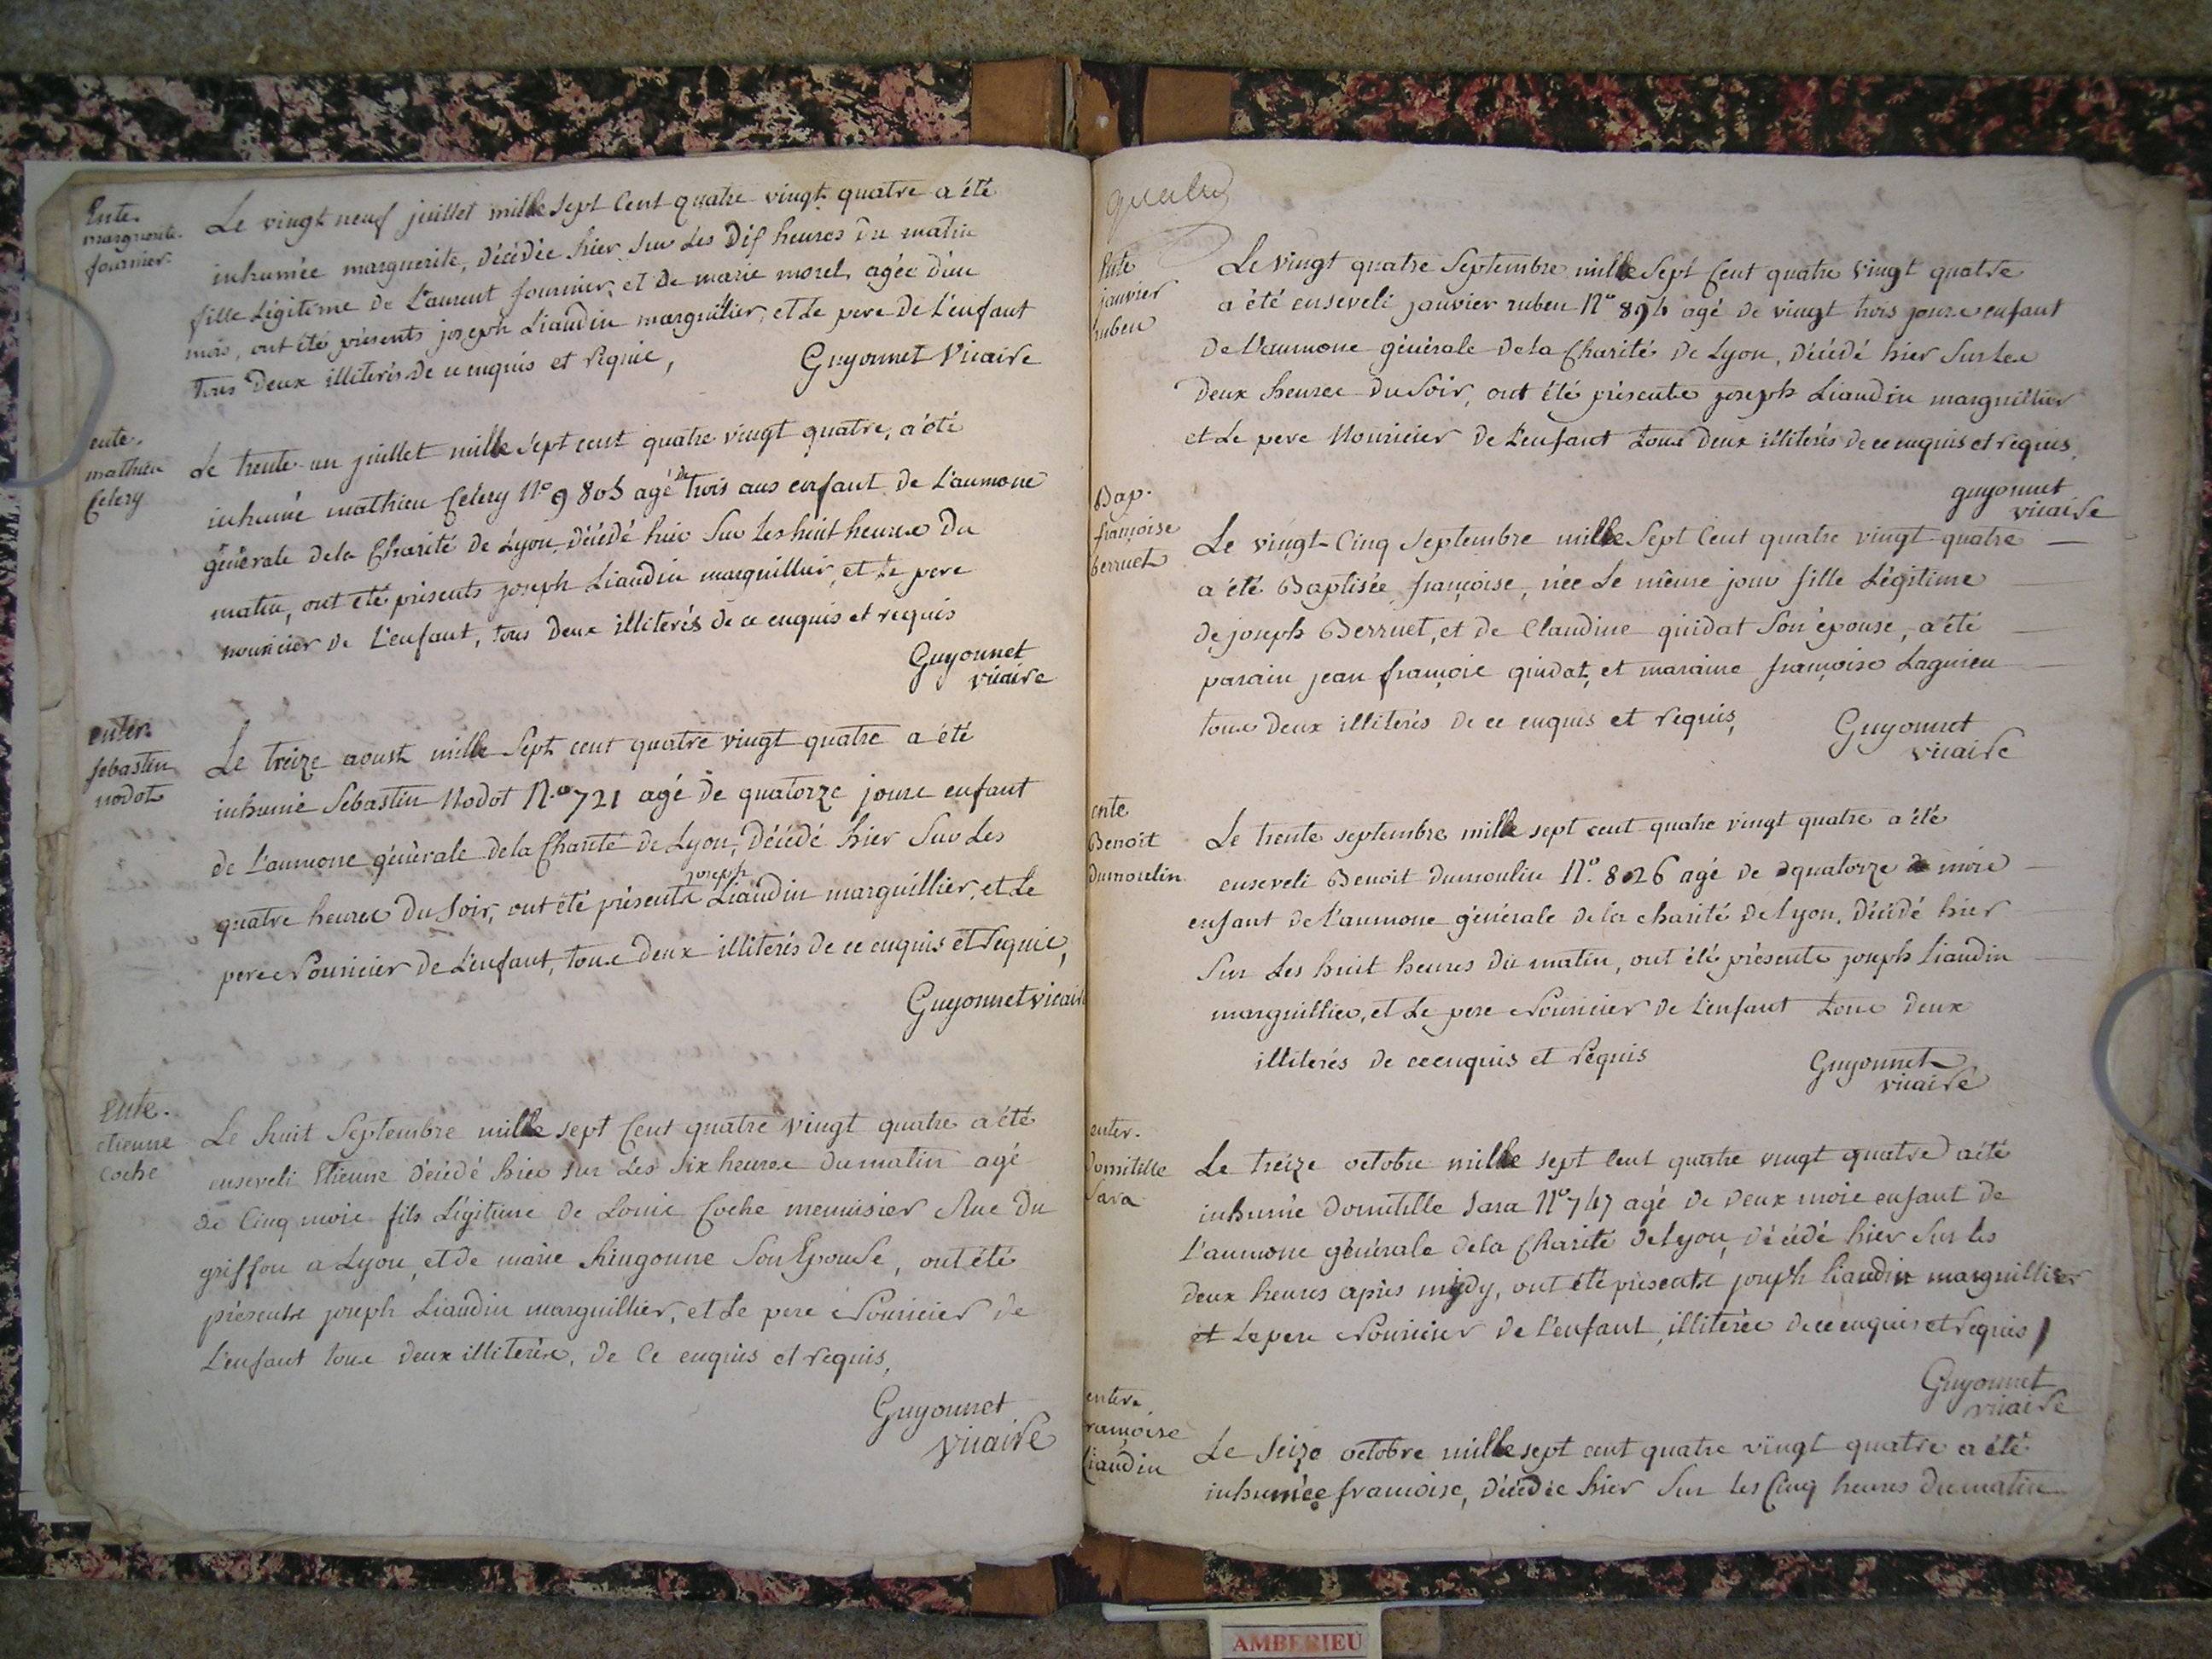 Ente.
marguerite
fournier
Le vingt neuf juillet mille sept Cent quatre vingt quatre a été
inhumée marguerite, décédée hier sur les dix heures du matin
fille Légitime de Laurent fournier, et de marie morel, agée d'un
mois, ont été présents joseph Liaudin marguillier, et Le pere de L'enfant
tous deux illiterés de ce enquis et requis,
Guyonnet Vicaire
ente.
mathieu
Celery
Le trente un juillet mille sept cent quatre vingt quatre, a été
inhumé mathieu Celery N° 9805 agé de trois ans enfant de L'aumone
générale de la Charité de Lyon, décédé hier sur les huit heures du
matin, ont été présents joseph Liaudin marguillier, et Le pere
nouricier de L'enfant, tous deux illiterés de ce enquis et requis
Guyonnet
vicaire
enter.
sebastien
nodot
Le treize aoust mille sept cent quatre vingt quatre a été
inhumé Sebastien Nodot N.° 721 agé de quatorze jours enfant
de L'aumone générale de la Charité de Lyon, décédé hier sur Les
quatre heures du soir, ont été présents joseph Liaudin marguillier, et Le
pere Nouricier de L'enfant, tous deux illiterés de ce enquis et requis,
Guyonnet vicaire
Ente.
etienne
Coche
Le huit Septembre mille sept Cent quatre vingt quatre a été
enseveli Etienne décédé hier sur Les six heures du matin agé
de Cinq mois fils Légitime de Louis Coche menuisier Rue du
griffon a Lyon, et de marie Son Epouse, ont été
présents joseph Liaudin marguillier, et Le pere Nouricier de
L'enfant tous deux illiterés, de Ce enquis et requis,
Guyonnet
vicaire
quatre
Ente
janvier
ruben
Le vingt quatre Septembre mille sept Cent quatre vingt quatre
a été enseveli janvier ruben N° 894 agé de vingt trois jours enfant
de L'aumone générale de la Charité de Lyon, décédé hier sur Les
deux heures du soir, ont été présents joseph Liaudin marguillier
et Le pere Nouricier de L'enfant tous deux illiterés de ce enquis et requis,
guyonnet
vicaire
Bap.
françoise
berruet
Le vingt Cinq Septembre mille sept Cent quatre vingt quatre
a été Baptisée françoise, née Le même jour fille Légitime
de joseph Berruet, et de Claudine guidat Son épouse, a été
parain jean françois guidat, et maraine françoise Lagnieu
tous deux illiterés de ce enquis et requis,
Guyonnet
vicaire
ente
Benoit
dumoulin
Le trente septembre mille sept cent quatre vingt quatre a été
enseveli Benoit Dumoulin N.° 826 agé de quatorze mois
enfant de L'aumone générale de la charité de Lyon, décédé hier
Sur Les huit heures du matin, ont été présents joseph Liaudin
marguillier, et Le pere Nouricier de L'enfant tous deux
illiterés de ce enquis et requis
Guyonnet
vicaire
enter.
Domitille
Sara
Le treize octobre mille sept cent quatre vingt quatre a été
inhumé Domitille Sara N° 747 agé de deux mois enfant de
L'aumone générale de la Charité de Lyon, décédé hier sur les
deux heures après midy, ont été présents joseph liaudin marguillier
et Le pere Nouricier de L'enfant, illiterés de ce enquis et requis
Guyonnet
vicaire
enter.
françoise
liaudin
Le seize octobre mille sept cent quatre vingt quatre a été
inhumée francoise, décédée hier sur les Cinq heures du matin
AMBERIEU